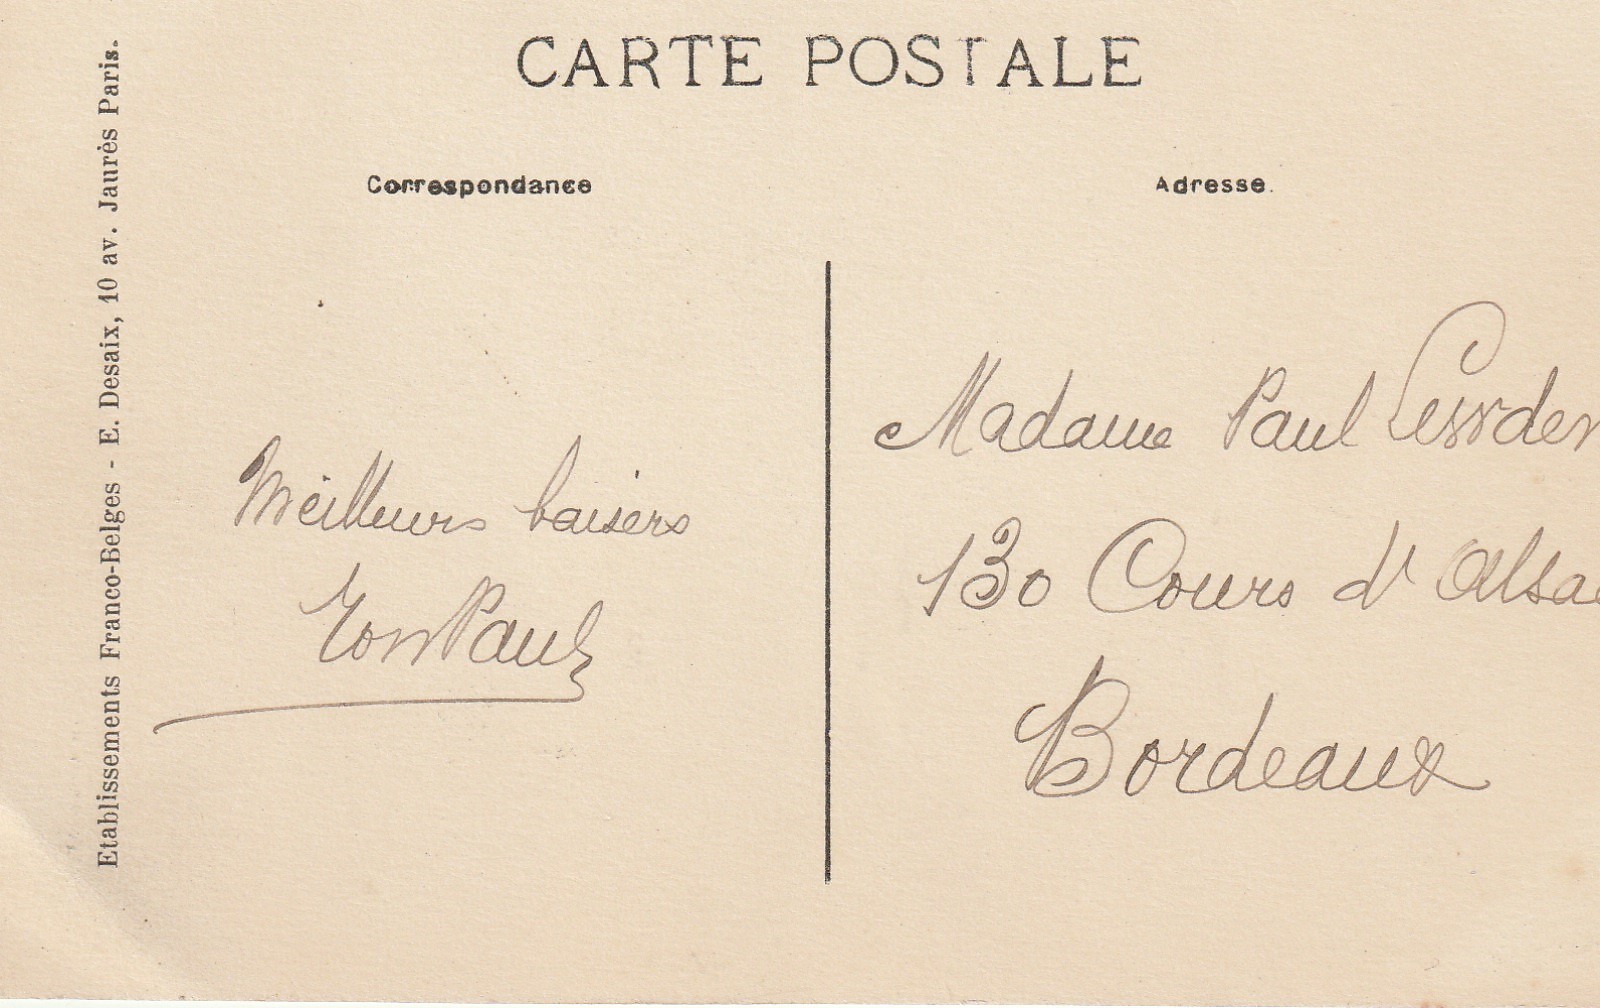 CARTE POSTALE
Correspondance
Adresse.
Etablissements Franco-Belges - E. Desaix, 10 av. Jaurès Paris.
Meilleurs baisers
Ton Paul
Madame Paul
130 Cours d'Alsa
Bordeaux